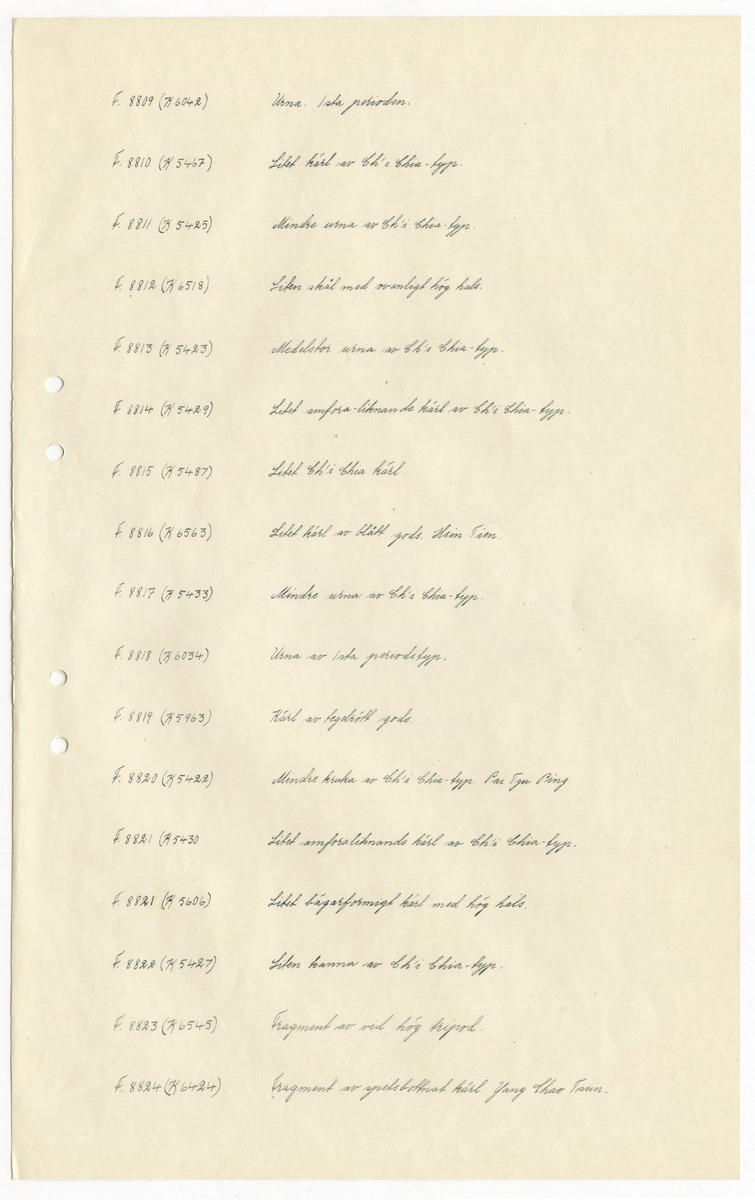 F. 8809 (K 6042) Urna. 1sta perioden.
F. 8810 (K 5467) Litet kärl av Ch'i Chia-typ.
F. 8811 (K 5425) Mindre urna av Ch'i Chia-typ.
F. 8812 (K 6518) Liten skål med ovanligt hög hals.
F. 8813 (K 5423) Medelstor urna av Ch'i Chia-typ.
F. 8814 (K 5429) Litet amfora-liknande kärl av Ch'i Chia-typ.
F. 8815 (K 5487) Litet Ch'i Chia kärl.
F. 8816 (K 6563) Litet kärl av blått gods. Hsin Tien.
F. 8817 (K 5433) Mindre urna av Ch'i Chia-typ.
F. 8818 (K 6034) Urna av 1sta periodstyp.
F. 8819 (K 5963) Kärl av tegelrött gods.
F. 8820 (K 5422) Mindre kruka av Ch'i Chia-typ. Pai Tzu Ping.
F. 8821 (K 5430 Litet amforaliknande kärl av Ch'i Chia-typ.
F. 8821 (K 5606) Litet bägarformigt kärl med hög hals.
F. 8822 (K 5427) Liten kanna av Ch'i Chia-typ.
F. 8823 (K 6545) Fragment av vid, hög tripod.
F. 8824 (K 6424) Fragment av spetsbottnat kärl. Yang Shao Tsun.